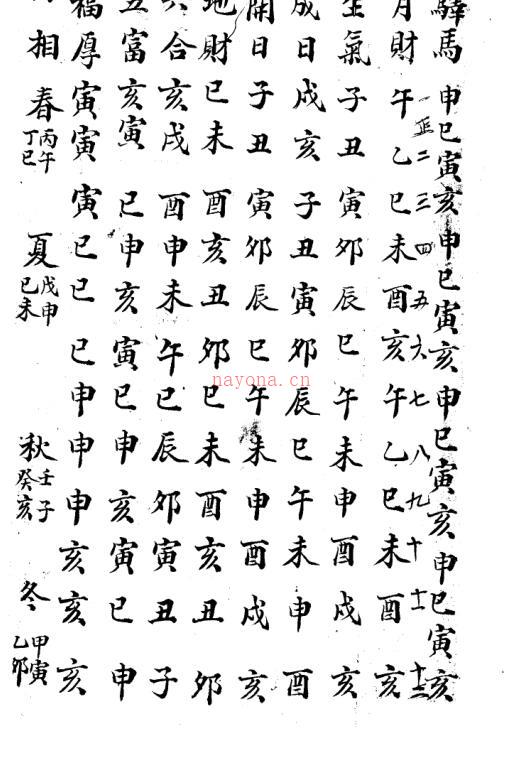 驛馬申巳寅亥申巳寅亥申巳寅亥申巳寅亥
一正二三四五六七八九十十一十二
月財午乙巳未酉亥午乙巳未酉亥
氣子丑寅夘辰巳午未申酉戌亥
成日戌亥子丑寅夘辰巳午未申酉
開日子丑寅夘辰巳午未申酉戌亥
地財巳未酉亥丑夘巳未酉亥丑夘
合亥戌酉申未午巳辰夘寅丑子
富亥寅巳申亥寅巳申亥寅巳申
福厚寅寅寅巳巳巳申申申亥亥亥
相春丙午丁巳夏戊申己未秋壬子癸亥冬甲寅乙夘
nayona.cn